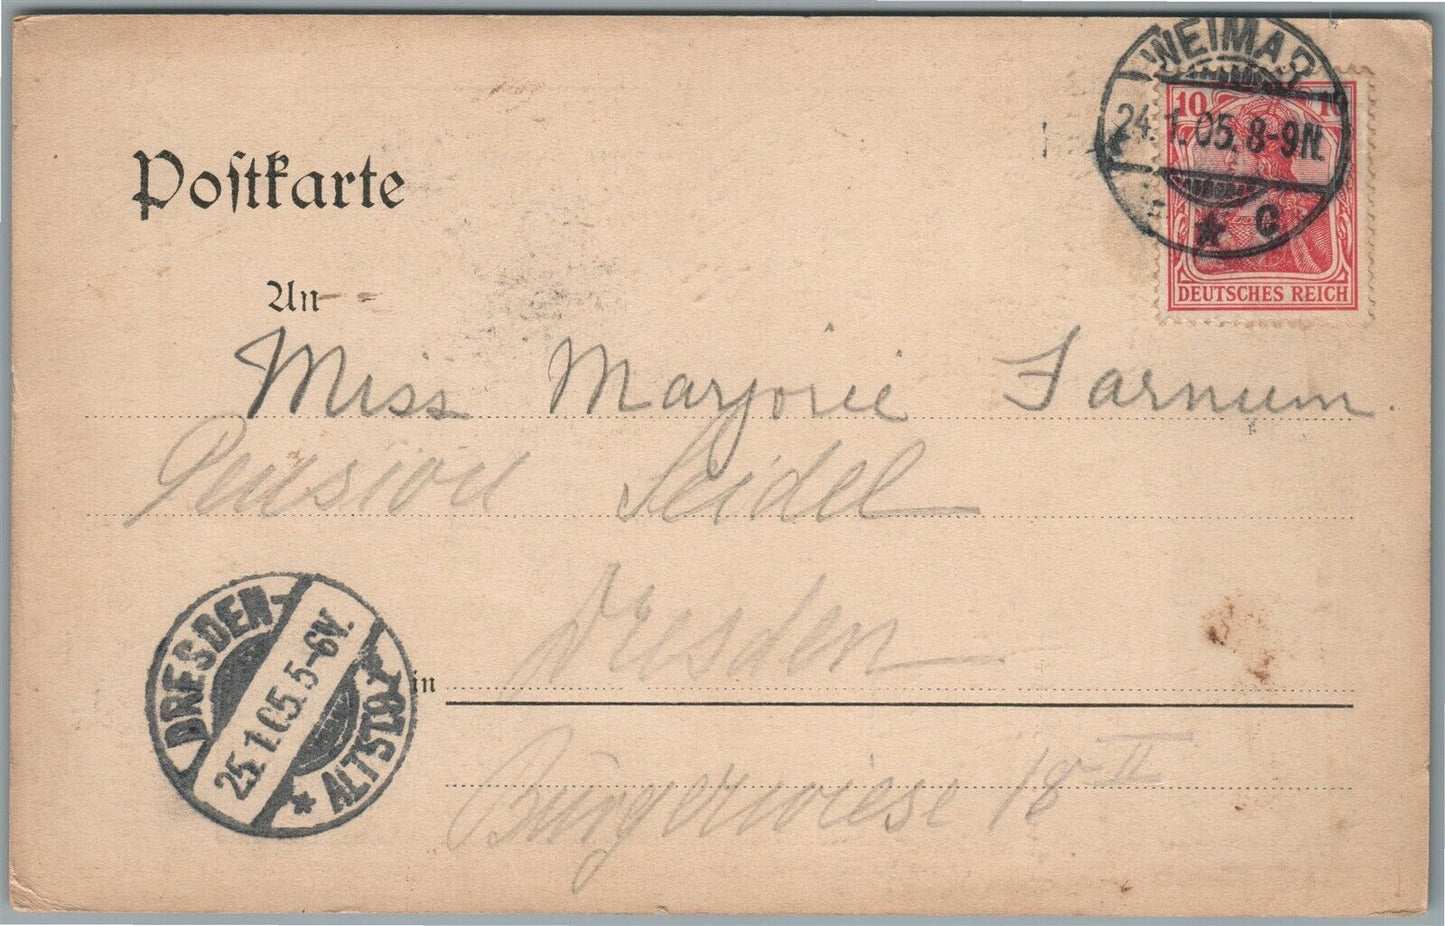 WEIMAR
24.1.05. 8-9N.
* C
10 10
DEUTSCHES REICH
Postkarte
An
Miss Marjorie Farnum.
Pension Seidel
Dresden
in
Bürgerwiese 18 II
DRESDEN-
25.1.05. 5-6V.
* ALTST. 9